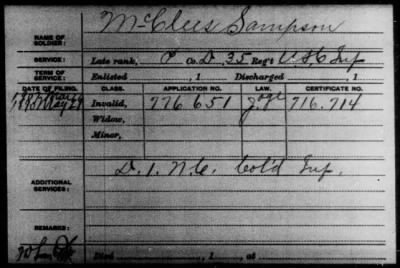 NAME OF SOLDIER: McClees Sampson
SERVICE: Late rank, P Co. D, 35 Reg't U.S.C Inf
TERM OF SERVICE: Enlisted , 1 Discharged , 1
DATE OF FILING. CLASS. APPLICATION NO. LAW. CERTIFICATE NO.
Invalid, 776.651 716.714
Widow,
Minor,
ADDITIONAL SERVICES: D. 1. N.C. Col'd Inf.
REMARKS:
Died , 1 , at